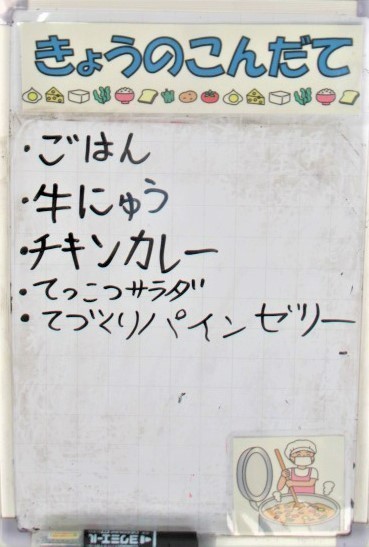 きょうのこんだて
・ごはん
・牛にゅう
・チキンカレー
・てっこつサラダ
・てづくりパインゼリー